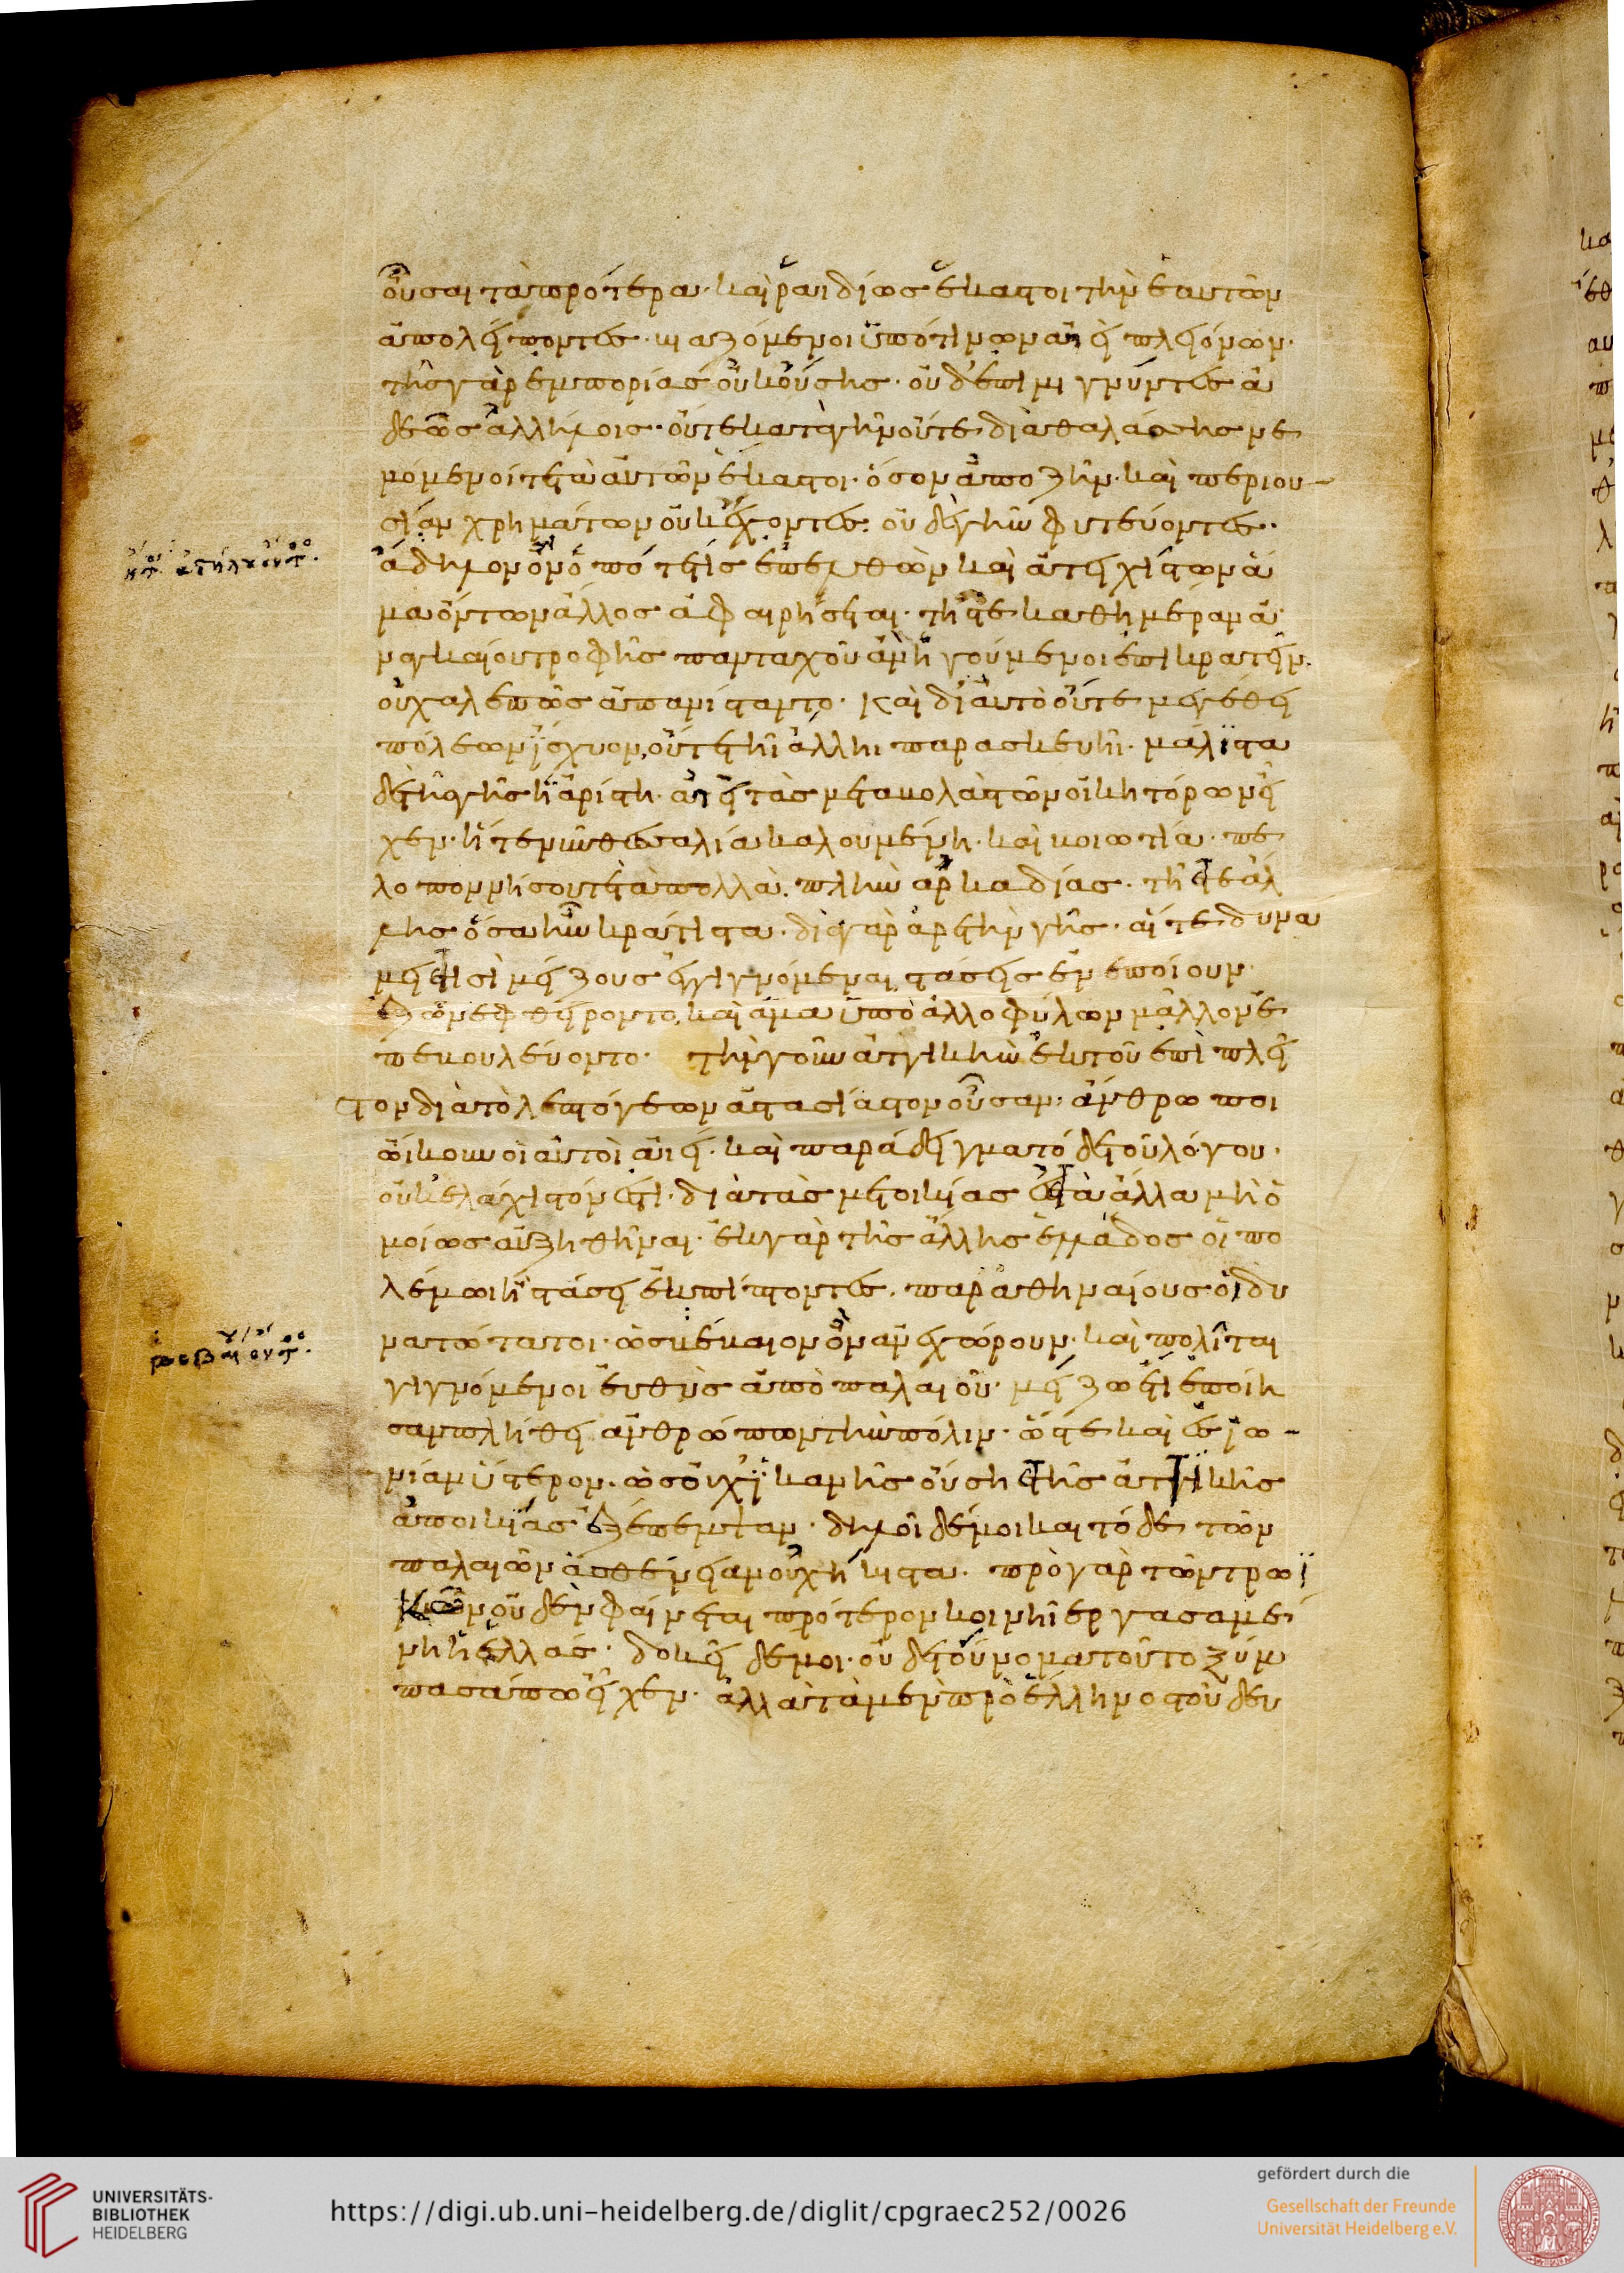 οὖσαι τὰ πρότερα· καὶ ῥαιδίως ἕκαστοι τὴν ἑαυτῶν
ἀπολείποντες· βιαζόμενοι ὑπό τινων αἰεὶ πλειόνων·
τῆς γὰρ ἐμπορίας οὐκ οὔσης· οὐδ' ἐπιμιγνύντες ἀ
δεῶς ἀλλήλοις· οὔτε κατὰ γῆν οὔτε διὰ θαλάσσης νε
μόμενοί τε τὰ αὐτῶν ἕκαστοι· ὅσον ἀποζῆν· καὶ περιου-
σίαν χρημάτων οὐκ ἔχοντες· οὐδὲ γῆν φυτεύοντες·
ἄδηλον ὂν ὁπότε τις ἐπελθὼν καὶ ἀτειχίστων ἅ
μα ὄντων ἄλλος ἀφαιρήσεται· τῆς τε καθημέραν ἀ
ναγκαίου τροφῆς πανταχοῦ ἂν ἡγούμενοι ἐπικρατεῖν·
οὐ χαλεπῶς ἀπανίσταντο· καὶ δι' αὐτὸ οὔτε μεγέθει
πόλεων ἴσχυον, οὔτε τῆι ἄλληι παρασκευῆι· μάλιστα
δὲ τῆς γῆς ἡ ἀρίστη· ἀεὶ τὰς μεταβολὰς τῶν οἰκητόρων εἶ
χεν· ἥ τε νῦν θεσσαλία καλουμένη· καὶ βοιωτία· πε
λοποννήσου τε τὰ πολλὰ· πλὴν ἀρκαδίας· τῆς τε ἄλ
λης ὅσα ἦν κράτιστα· διὰ γὰρ ἀρετὴν γῆς· αἵ τε δυνά
μεις τισὶ μείζους ἐγγιγνόμεναι στάσεις ἐνεποίουν·
ἐξ ὧν ἐφθείροντο, καὶ ἅμα ὑπὸ ἀλλοφύλων μᾶλλον ἐ
πεβουλεύοντο· τὴν γοῦν ἀττικὴν ἐκ τοῦ ἐπὶ πλεῖ
στον διὰ τὸ λεπτόγεων ἀστασίαστον οὖσαν· ἄνθρωποι
ὤικουν οἱ αὐτοὶ αἰεί· καὶ παράδειγμα τόδε τοῦ λόγου·
οὐκ ἐλάχιστόν ἐστι· διὰ τὰς μετοικίας ἐς τὰ ἄλλα μὴ ὁ
μοίως αὐξηθῆναι· ἐκ γὰρ τῆς ἄλλης ἑλλάδος οἱ πο
λέμωι ἢ στάσει ἐκπίπτοντες· παρ' ἀθηναίους οἱ δυ
νατώτατοι· ὡς βέβαιον ὂν ἀνεχώρουν· καὶ πολῖται
γιγνόμενοι εὐθὺς ἀπὸ παλαιοῦ· μείζω ἔτι ἐποίη
σαν πλήθει ἀνθρώπων τὴν πόλιν· ὥστε καὶ ἐς ἰω-
νίαν ὕστερον· ὡς οὐχ' ἱκανῆς οὔσης τῆς ἀττικῆς
ἀποικίας ἐξέπεμψαν· δηλοῖ δέ μοι καὶ τόδε τῶν
παλαιῶν ἀσθένειαν οὐχ ἥκιστα· πρὸ γὰρ τῶν τρωϊ
κῶν οὐδὲν φαίνεται πρότερον κοινῆι ἐργασαμέ
νη ἡ ἑλλάς· δοκεῖ δέ μοι· οὐδὲ τοὔνομα τοῦτο ξύμ
πασά πω εἶχεν· ἀλλὰ τὰ μὲν πρὸ ἕλληνος τοῦ δευ
UNIVERSITÄTS-
BIBLIOTHEK
HEIDELBERG
https://digi.ub.uni-heidelberg.de/diglit/cpgraec252/0026
gefördert durch die
Gesellschaft der Freunde
Universität Heidelberg e.V.